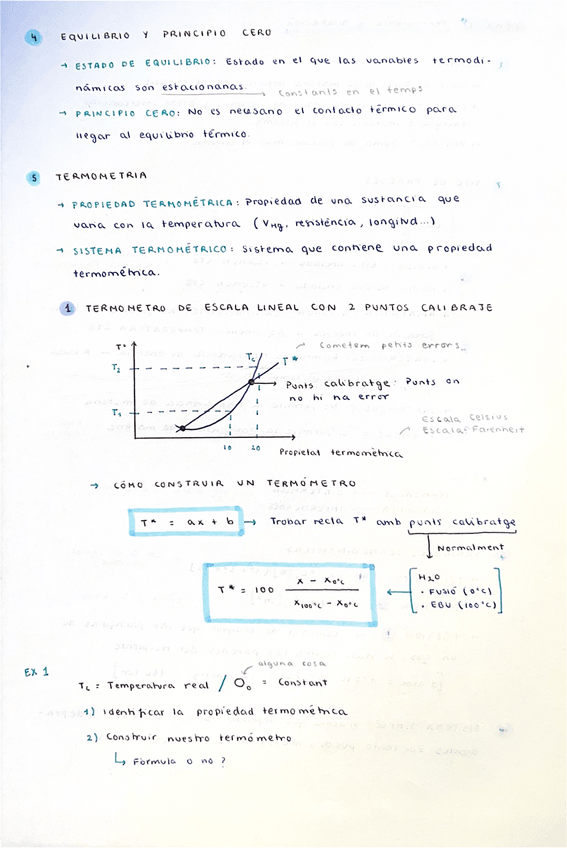 4 EQUILIBRIO Y PRINCIPIO CERO
→ ESTADO DE EQUILIBRIO: Estado en el que las variables termodi-
námicas son estacionarias. → Constants en el temps
→ PRINCIPIO CERO: No es necesario el contacto térmico para
llegar al equilibrio térmico.
5 TERMOMETRIA
→ PROPIEDAD TERMOMÉTRICA: Propiedad de una sustancia que
varia con la temperatura (VHg, resistència, longitud...)
→ SISTEMA TERMOMÉTRICO: Sistema que contiene una propiedad
termométrica.
1 TERMOMETRO DE ESCALA LINEAL CON 2 PUNTOS CALIBRAJE
T*
Cometem petits errors..
T2
Tc
T*
Punts calibratge: Punts on
no hi ha error
T1
Escala Celsius
Escala Farenheit
10 20 Propietat termomètrica
→ CÓMO CONSTRUIR UN TERMÓMETRO
T* = ax + b → Trobar recta T* amb punts calibratge
Normalment
T* = 100 (x - x0°C) / (x100°C - x0°C)
H2O
· FUSIÓ (0°C)
· EBU (100°C)
alguna cosa
EX 1
Tc = Temperatura real / O0 = Constant
1) Identificar la propiedad termométrica
2) Construir nuestro termómetro
↳ Fórmula o no?